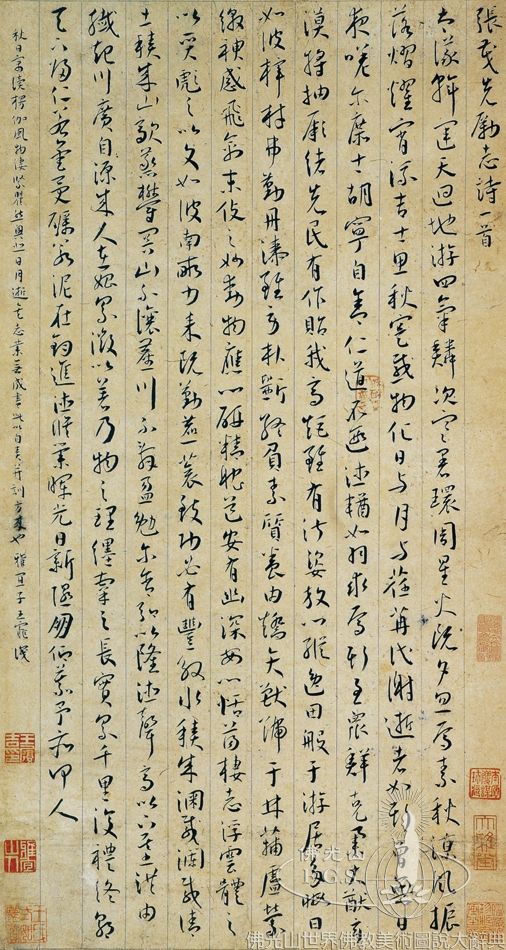 張茂先勵志詩一首
大儀斡運天迴地游四氣鱗次寒暑環周星火既夕忽焉素秋涼風振
落熠燿宵流吉士思秋寔感物化日與月與荏苒代謝逝者如斯曾無日
夜嗟爾庶士胡寧自舍仁道不遐德輶如羽求焉斯至眾鮮克舉大猷玄
漠將抽厥緒先民有作貽我高矩雖有淑姿放心縱逸田般于游居多暇日
如彼梓材弗勤丹漆雖勞朴斲終負素質養由矯矢獸號于林蒲盧縈
繳神感飛禽末伎之妙動物應心研精耽道安有幽深安心恬蕩棲志浮雲體之
以質彪之以文如彼南畝力耒既勤藨蓘致功必有豐殷水積成淵載瀾載清
土積成山歊蒸鬱冥山不讓塵川不辭盈勉爾含弘以隆德聲高以下基洪由
纖起川廣自源成人在始累微以著乃物之理纆牽之長實累千里復禮終朝
天下歸仁若金受礪若泥在鈞進德脩業暉光日新隰朋仰慕予亦何人
秋日齋讀楞伽風物淒緊然興日月逝矣志業無成書此以自責并訓方來也 雅宜子王寵識
佛光山
F.G.S.
佛光山世界佛教美術圖說大辭典